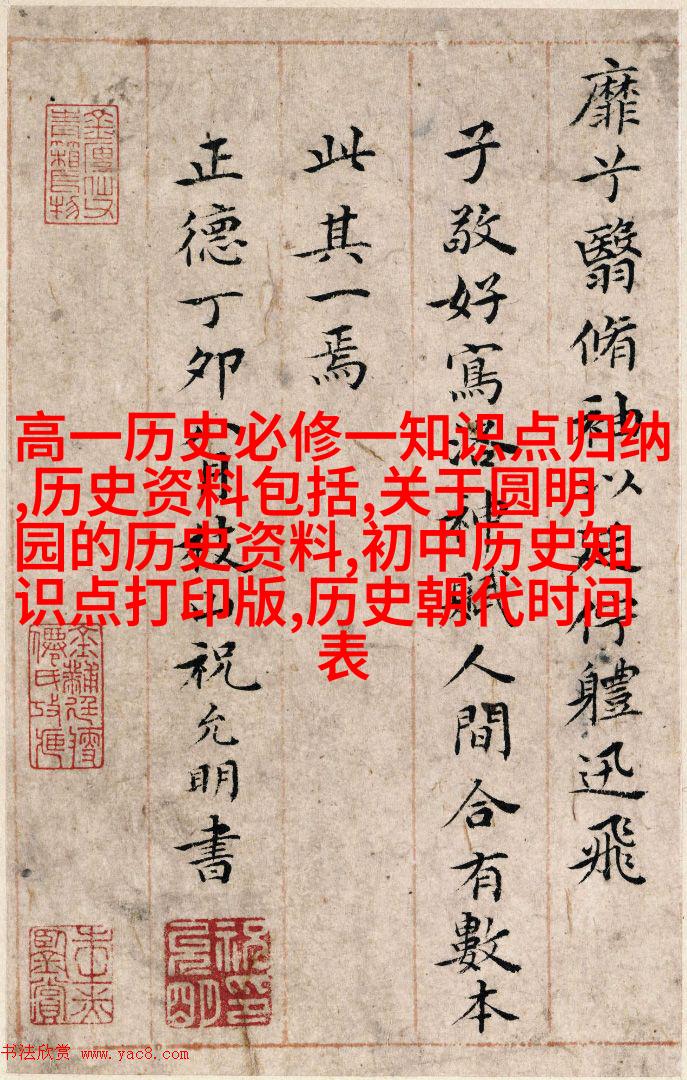 靡兮翳脩袖以延佇體迅飛
子敬好寫洛神賦人間合有數本
此其一焉
正德丁卯八月枝山祝允明書
高一历史必修一知识点归纳
,历史资料包括,关于圆明
园的历史资料,初中历史知
识点打印版,历史朝代时间
表
书法欣赏 www.yac8.com